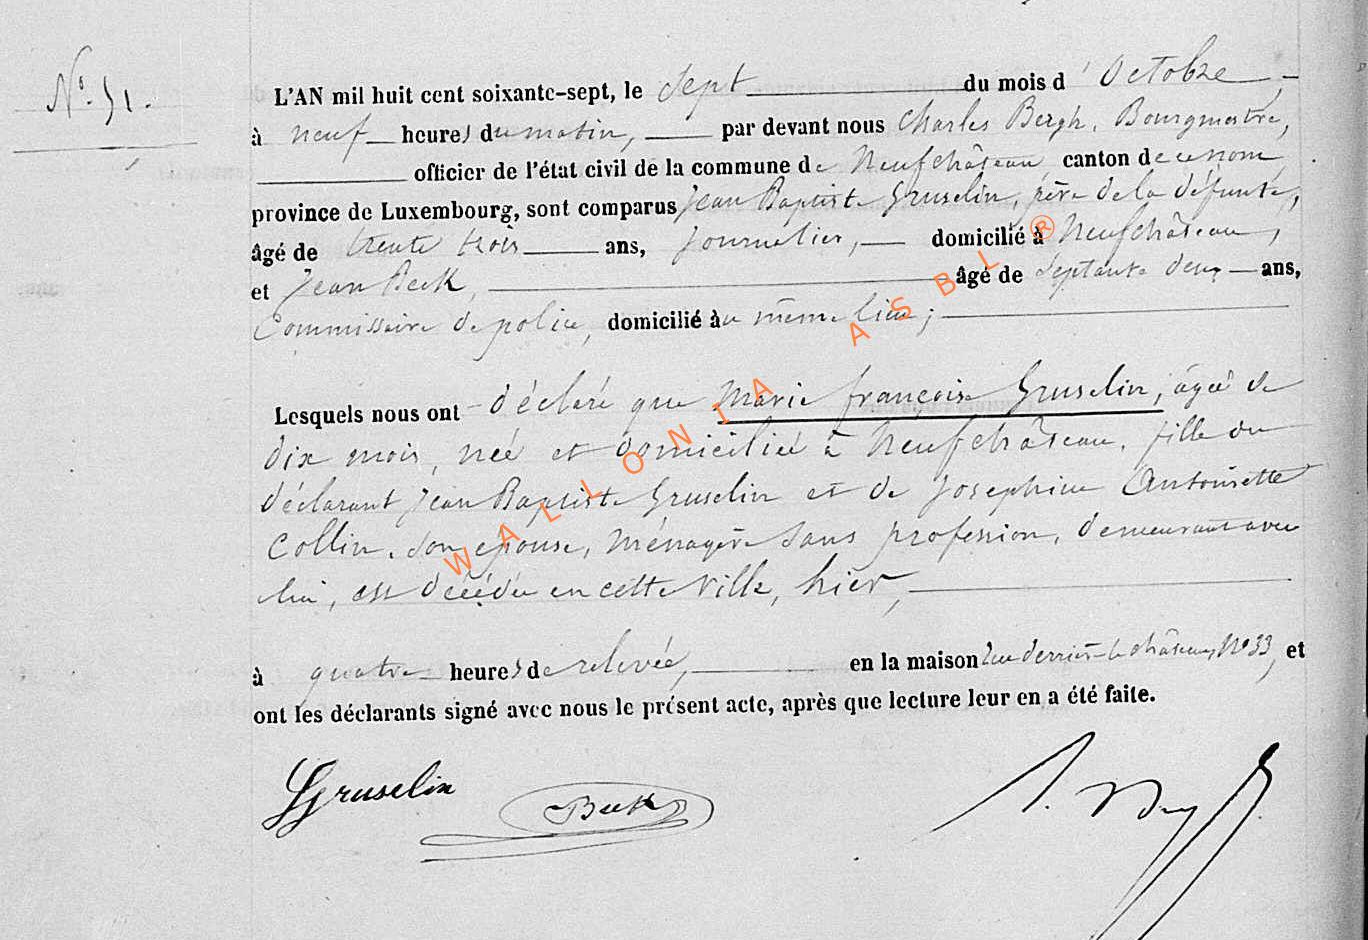 N° 51.
L'AN mil huit cent soixante-sept, le sept du mois d'Octobre,
à neuf heures du matin, par devant nous Charles Bergh, Bourgmestre,
officier de l'état civil de la commune de Neufchâteau canton de ce nom
province de Luxembourg, sont comparus Jean Baptiste Gruselin, père de la défunte,
âgé de trente trois ans, journalier, domicilié à Neufchâteau,
et Jean Beck, âgé de septante deux ans,
Commissaire de police, domicilié au même lieu;
Lesquels nous ont déclaré que Marie françoise Gruselin, âgée de
dix mois, née et domiciliée à Neufchâteau, fille du
déclarant Jean Baptiste Gruselin et de Josephine Antoinette
Collin, son épouse, Ménagère sans profession, demeurant avec
lui, est décédée en cette ville, hier,
à quatre heures de relevée, en la maison rue derrière le château, N° 33, et
ont les déclarants signé avec nous le présent acte, après que lecture leur en a été faite.
Gruselin Beck
WALLONIA ASBL ®